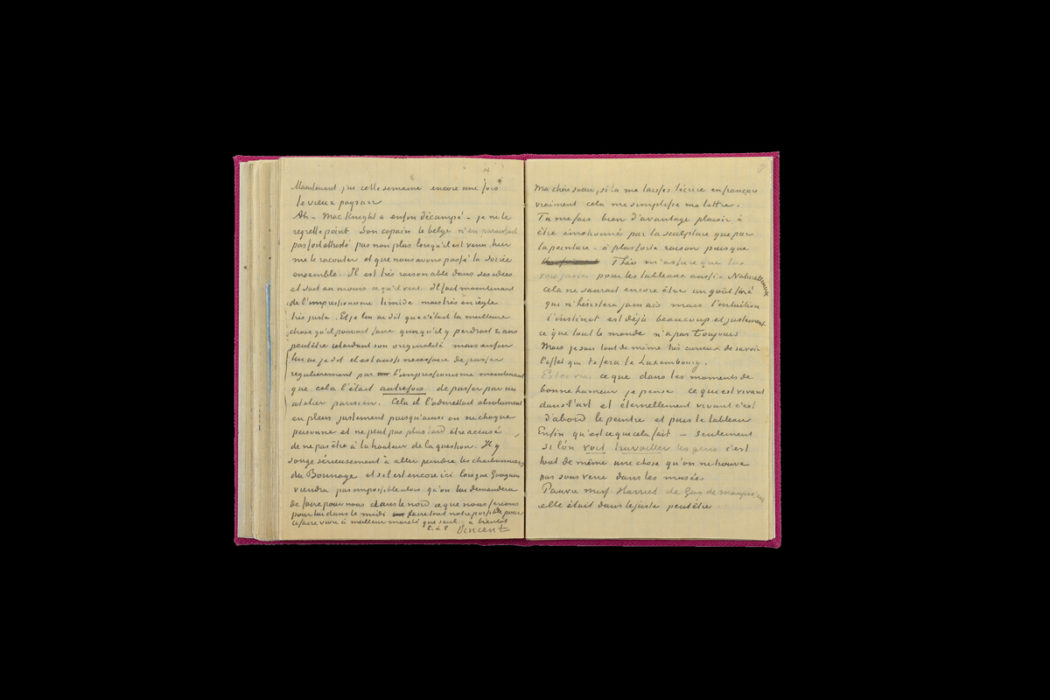 Maintenant j'ai cette semaine encore une fois
le vieux paysan
Ah – MacKnight a enfin décampé – je ne le
regrette point. Son copain le belge n'en paraissait
pas fort attristé pas non plus lorsqu'il est venu hier
me le raconter et que nous avons passé la soirée
ensemble. Il est très raisonnable dans ses idées
et sait au moins ce qu'il veut. Il fait maintenant
de l'impressionisme timide mais très en règle
très juste. Et je lui ai dit que c'était la meilleure
chose qu'il pouvait faire quoiqu'il y perdrait 2 ans
peutêtre retardant son originalité mais enfin
lui ai je dit il est aussi nécessaire de passer
regulierement par l'impressionisme maintenant
que cela l'était autrefois de passer par un
atelier parisien. Cela il l'admettait absolument
en plein justement puisqu'ainsi on ne choque
personne et ne peut pas plus tard être accusé
de ne pas être à la hauteur de la question. Il y
songe sérieusement à aller peindre les charbonniers
du Borinage et s'il est encore ici lorsque Gauguin
viendra pas impossible alors qu'on lui demandera
de faire pour nous dans le nord ce que nous ferions
pour lui dans le midi faire tout notre possible pour
le faire vivre à meilleur marché que seul. à bientôt
t. à t. Vincent
Ma chère soeur, si tu me laisses t'écrire en français
vraiment cela me simplifie ma lettre.
Tu me fais bien d'avantage plaisir à
être émotionnée par la sculpture que par
la peinture. à plus forte raison puisque
Theo m'assure que tu as
pour les tableaux aussi. Naturellement
cela ne saurait encore être un goût fixé
qui n'hésitera jamais mais l'intuition
l'instinct est déjà beaucoup et justement
ce que tout le monde n'a pas toujours
Mais je suis tout de même très curieux de savoir
l'effet que te fera le Luxembourg.
ce que dans les moments de
bonne humeur je pense ce qui est vivant
dans l'art et éternellement vivant c'est
d'abord le peintre et puis le tableau
Enfin qu'est ce que cela fait – seulement
si l'on voit travailler les gens c'est
tout de même une chose qu'on ne trouve
pas sous verre dans les musées
Pauvre miss Harriet de Guy de Maupassant
elle était dans le juste peut être